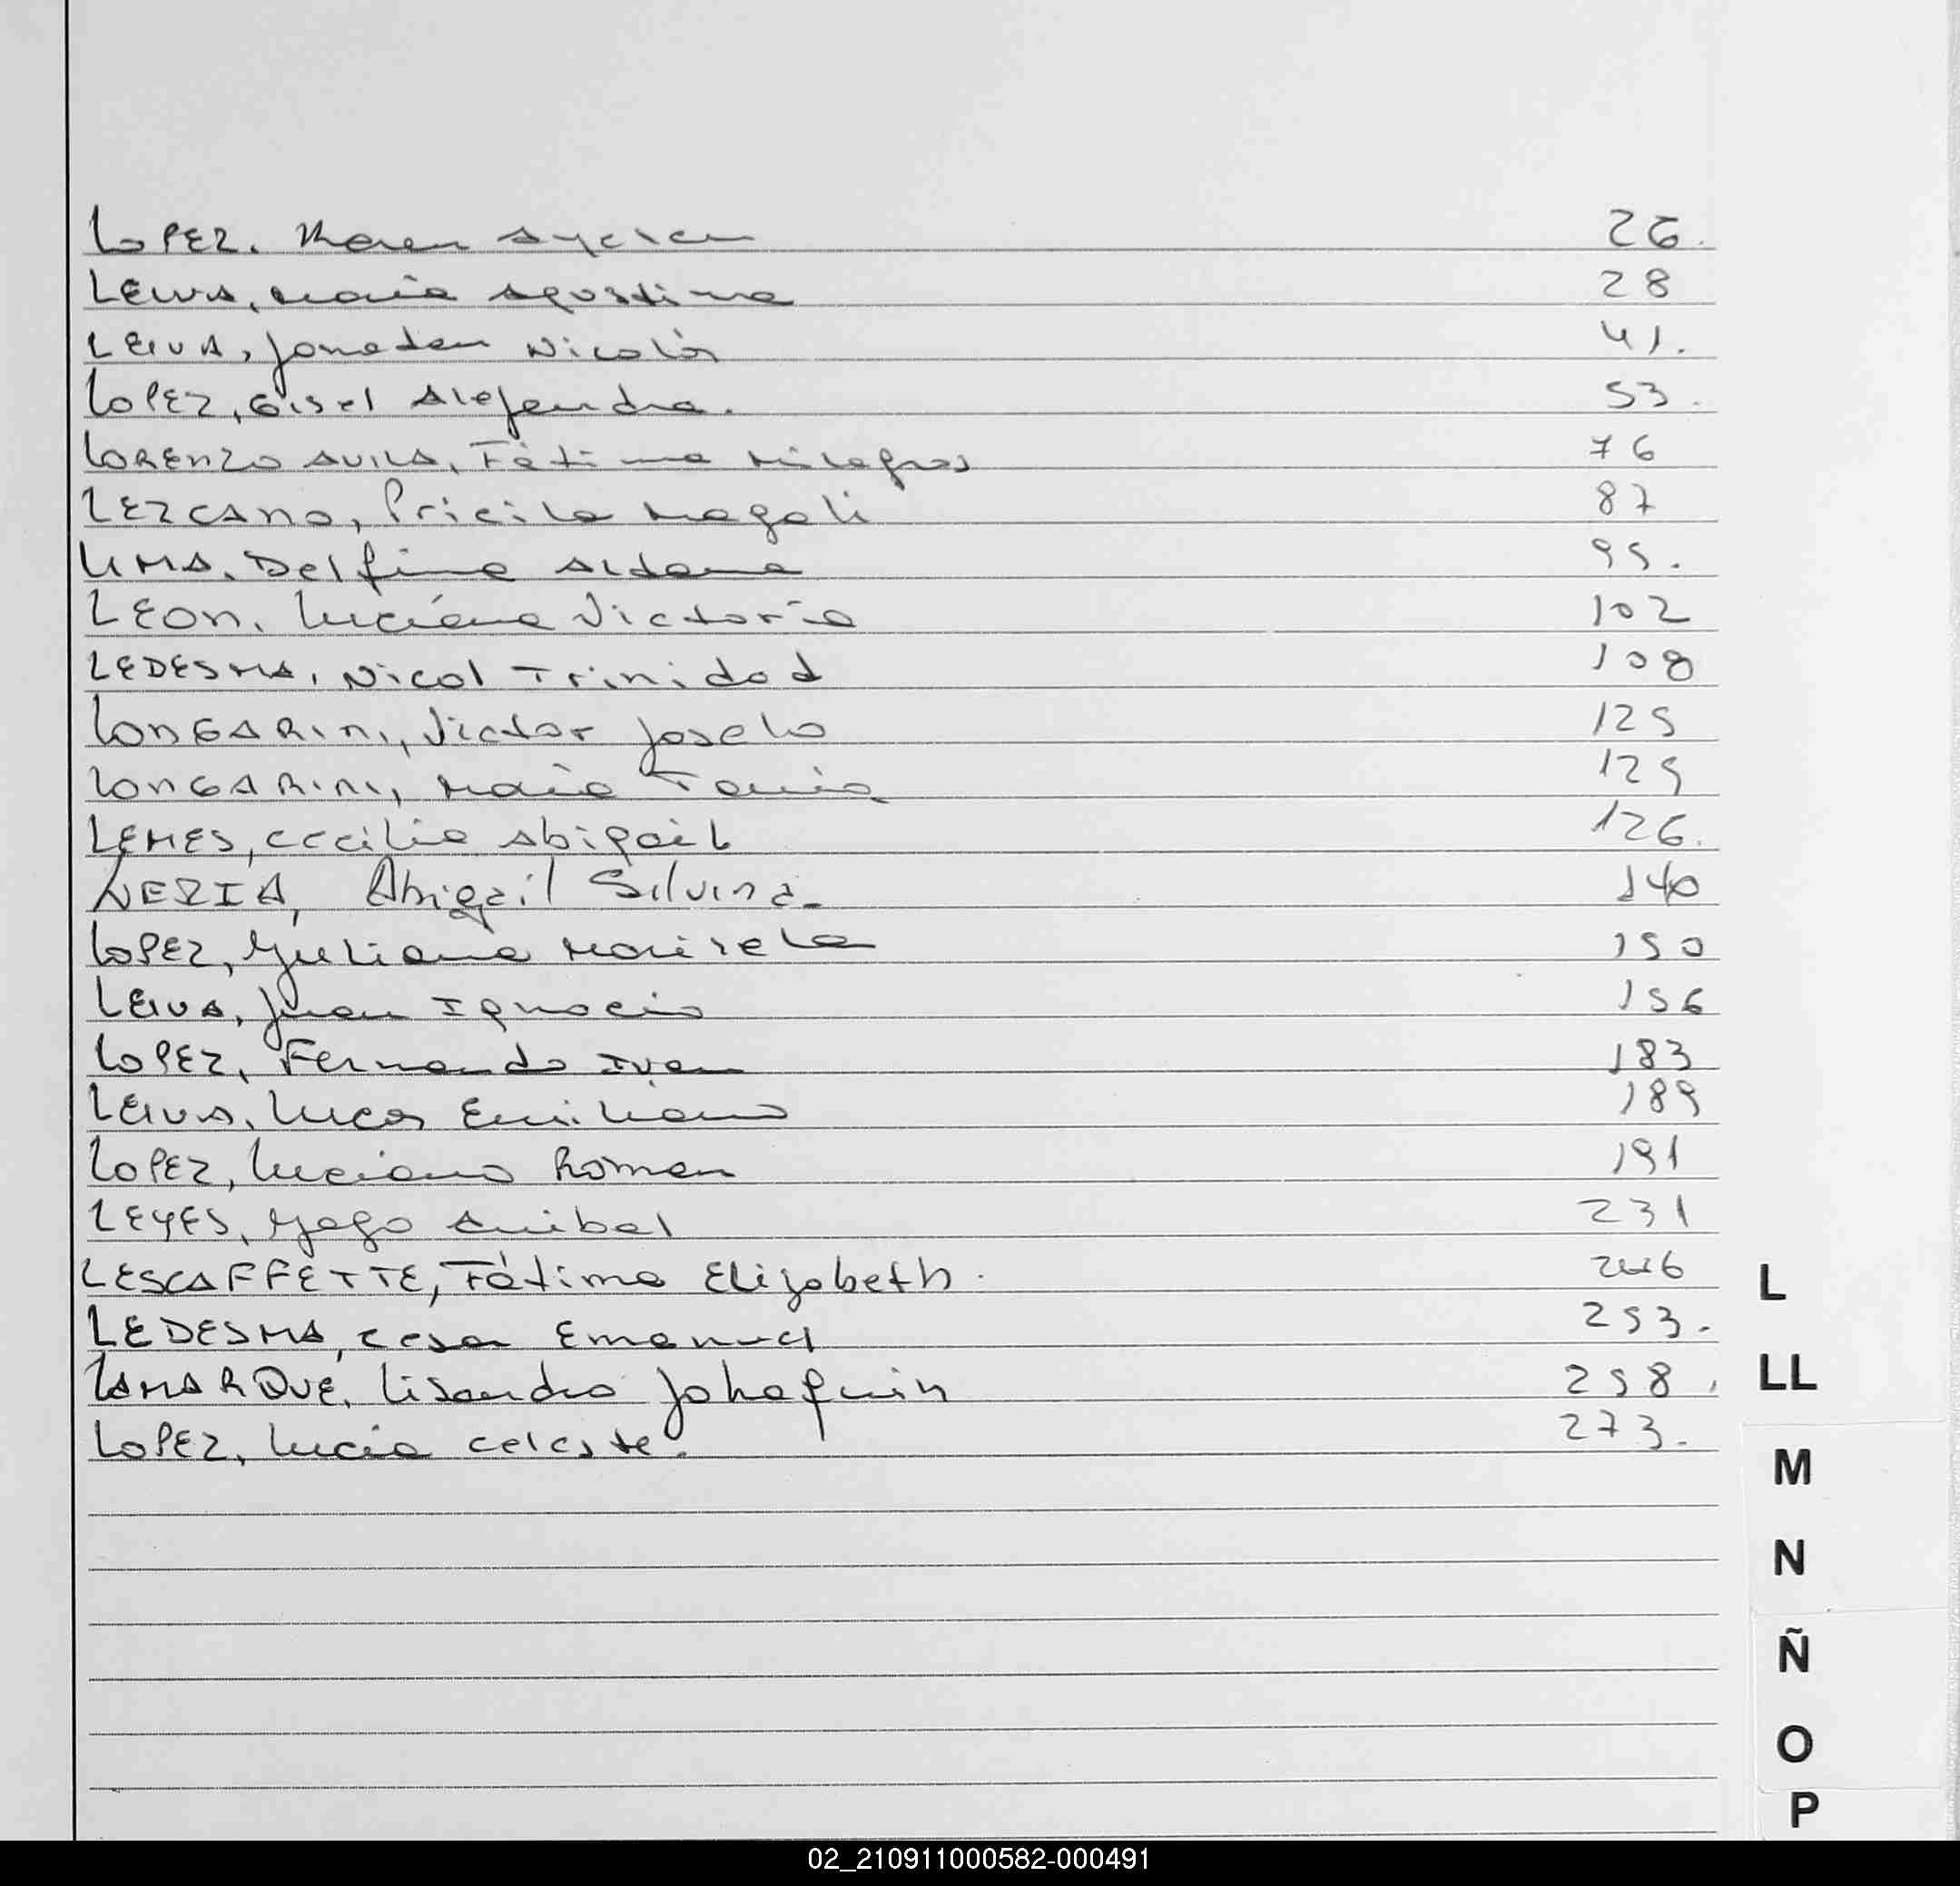 LOPEZ, Karen Ayelen 26.
LEIVA, María Agostina 28
LEIVA, Jonatan Nicolás 41.
LOPEZ, Gisel Alejandra. 53.
LORENZO AVILA, Fátima Milagros 76
LEZCANO, Pricila Magali 87
LIMA, Delfina Aldana 95.
LEON, Luciána Victoria 102
LEDESMA, Nicol Trinidad 108
LONGARINI, Victor Joselo 125
LONGARINI, María Tania 125
LEMES, Cecilia Abigail 126.
Abigail Silvina 140
LOPEZ, Yuliana Marisela 150
LEIVA, Juan Ignacio 156
LOPEZ, Fernando Ivan 183
LEIVA, Lucas Emiliano 189
LOPEZ, Luciano Roman 191
LEYES, Yago Anibal 231
LESCAFFETTE, Fátima Elizabeth. 246
LEDESMA, Cesar Emanuel 253.
LAMARQUE, Lisandro Johaquin 258.
LOPEZ, Lucía Celeste. 273.
L
LL
M
N
Ñ
O
P
02_210911000582-000491